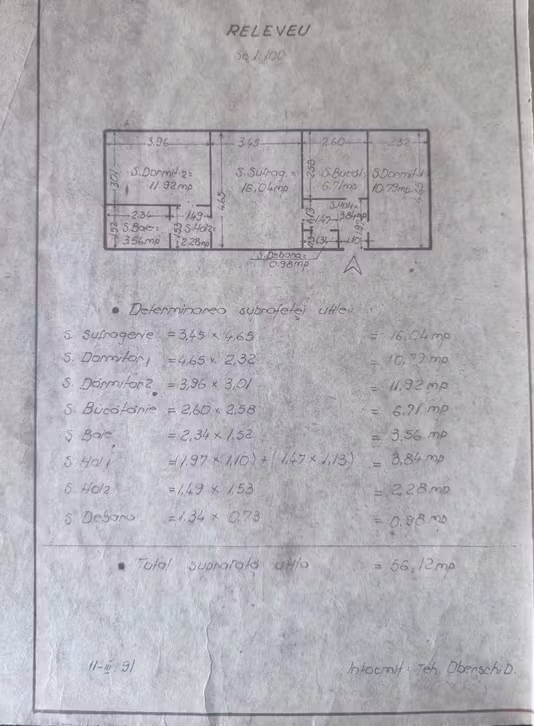 RELEVEU
Sc 1:100
3.96 3.45 2.60 2.32
S.Dormit.2=
11.92mp
3.01
S.Sufrag.=
16.04mp
4.65
S.Bucat.=
6.71mp
2.58
S.Dormit.1=
10.79mp
2.34
S.Baie=
3.56mp
1.49
S.Hol2=
2.28mp
1.53
S.Hol1=
3.84mp
1.47
1.13
1.97
1.34 1.10
S.Debara=
0.98mp
• Determinarea suprafeței utile:
S. Sufragerie = 3,45 × 4,65 = 16,04 mp
S. Dormitor1 = 4,65 × 2,32 = 10,79 mp
S. Dormitor2 = 3,96 × 3,01 = 11,92 mp
S. Bucătărie = 2,60 × 2,58 = 6,71 mp
S. Baie = 2,34 × 1,52 = 3,56 mp
S. Hol1 = (1,97 × 1,10) + (1,47 × 1,13) = 3,84 mp
S. Hol2 = 1,49 × 1,53 = 2,28 mp
S. Debara = 1.34 × 0,73 = 0,98 mp
• Total suprafață utila = 56,12 mp
11-III-91
Intocmit: Teh. Oberschi D.